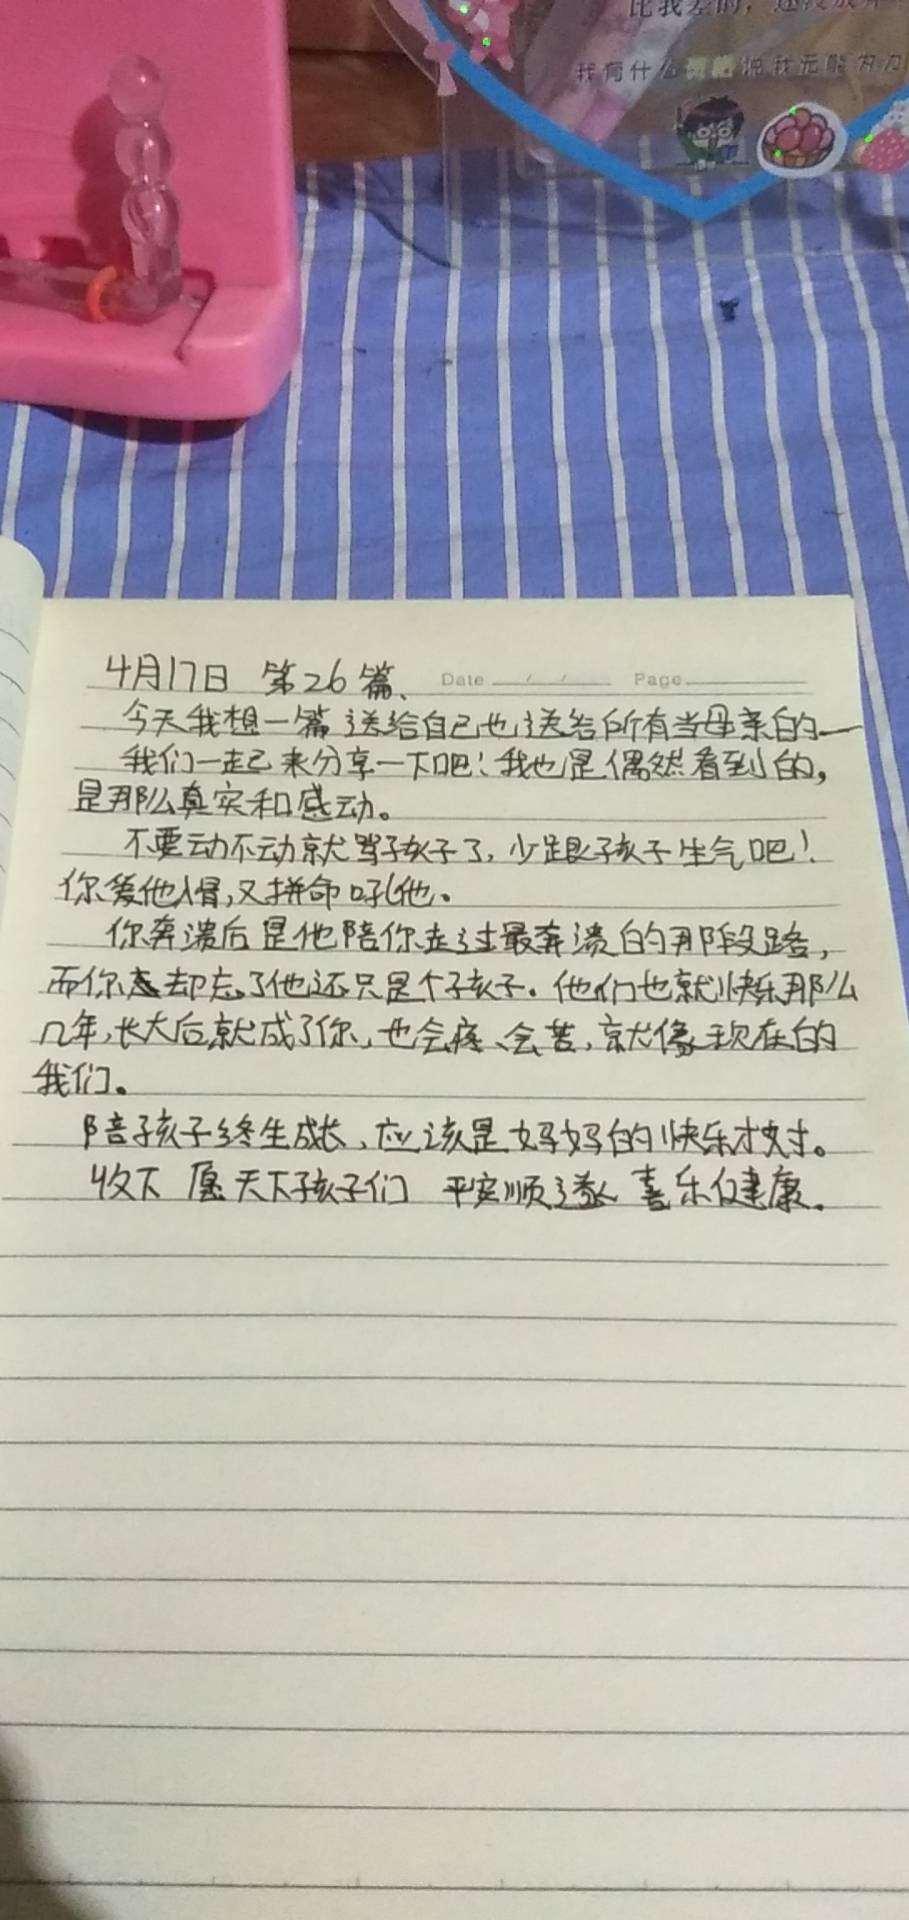 比我差的，还没放弃
我有什么资格说我无能为力
4月17日 第26篇、
Date / / Page
今天我想一篇送给自己也送给所有当母亲的一
我们一起来分享一下吧！我也是偶然看到的，
是那么真实和感动。
不要动不动就骂孩子了，少跟孩子生气吧！
你爱他入骨，又拼命吼他。
你奔溃后是他陪你走过最奔溃的那段路，
而你却忘了他还只是个孩子。他们也就快乐那么
几年，长大后就成了你，也会疼、会苦，就像现在的
我们。
陪孩子终生成长、应该是妈妈的快乐才对。
收下 愿天下孩子们 平安顺遂 喜乐健康。